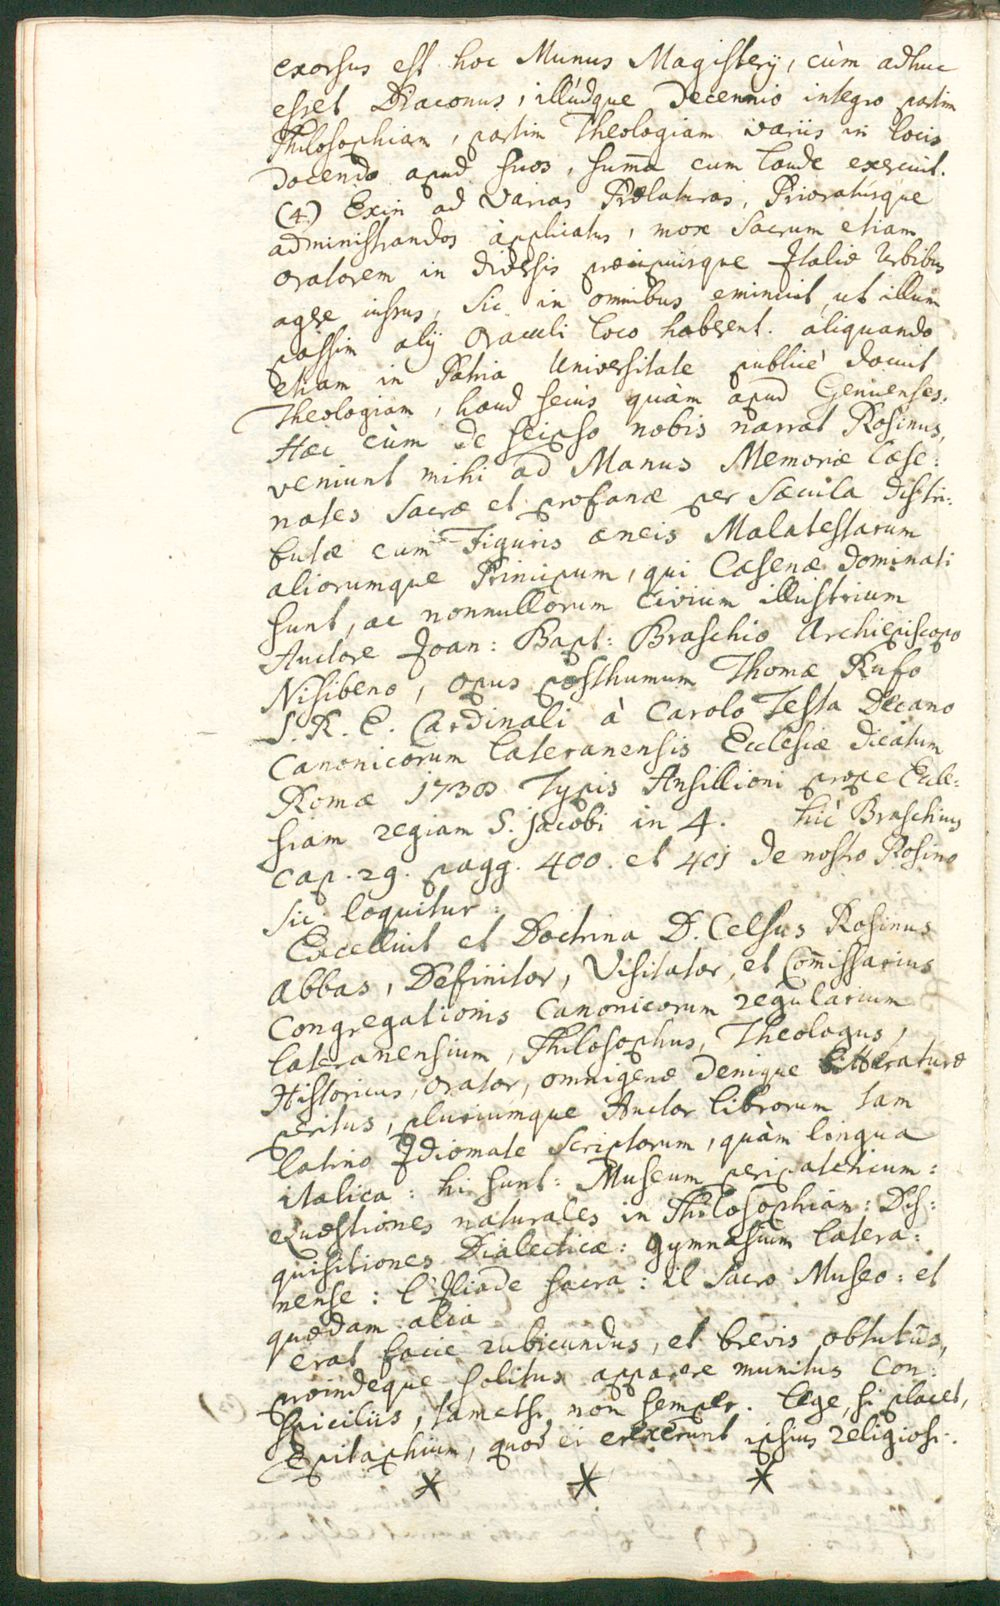 exorsus est hoc Munus Magisterij, cùm adhuc
esset Diaconus, illúdque Decennio integro partim
Philosophiam, partim Theologiam variis in locis
Docendo apud suos, summa cum laude exercuit.
(4) Exin ad Varias Prælaturas, Prioratúsque
administrandos àpplicatus, mox Sacrum etiam
oratorem in diversis præcipuisque Italiæ Urbibus
agere iussus, sic in omnibus eminuit, ut illum
passim alij Oraculi loco haberent. aliquando
etiam in Patria Universitate publicè docuit
Theologiam, haud secius quàm apud Genuenses.
Hæc cùm de seipso nobis narrat Rosinus,
veniunt mihi ad Manus Memoriæ Cæse:
nates sacræ et profanæ per sæcula distri:
butæ cum Figuris æneis Malatestarum
aliorumque Principum, qui Cæsenæ dominati
sunt, ac nonnullorum Civium illustrium
Auctore Joan: Bapt: Braschio Archiepiscopo
Nisibeno, opus posthumum Thomæ Rufo
S. R. E. Cardinali à Carolo Testa Decano
Canonicorum lateranensis Ecclesiæ dicatum
Romæ 1738 Typis Ansillioni prope Eccle:
siam regiam S. Jacobi in 4. hic Braschius
cap. 29. pagg. 400. et 401 de nostro Rosino
sic loquitur:
Excelluit et Doctrina D. Celsus Rosinus
Abbas, Definitor, Visitator, et Com̄issarius
Congregationis Canonicorum regularium
lateranensium, Philosophus, Theologus,
Historicus, Orator, omnigenæ denique litteraturæ
peritus, pluriumque Auctor librorum tam
latino Idiomate scriptorum, quàm lingua
italica: hi sunt: Museum peripateticum:
Quæstiones naturales in Philosophiam: Dis:
quisitiones Dialecticæ: gymnasium latera:
nense: l'Iliade sacra: il sacro Museo: et
quædam alia
erat facie rubicundus, et brevis obtutûs,
proindeque solitus apparere munitus Con:
spiciliis, tametsi non semper. lege, si placet,
Epitaphium, quod ei erexerunt ipsius religiosi.
* * *